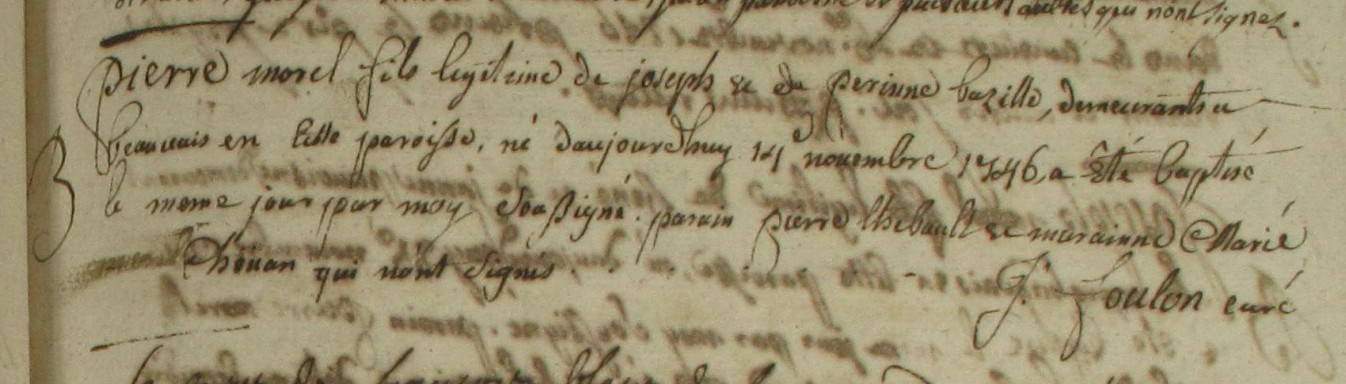 plusieurs autres qui nont signez.
pierre morel fils legitime de joseph et de perinne bazille, demeurants a
beauvais en cette paroisse, né daujourdhuy 14 novembre 1746, a été baptisé
le meme jour par moy Soussigné. parain pierre thebault et marainne Marie
Choüan qui nont Signés.
J. Foulon curé
B